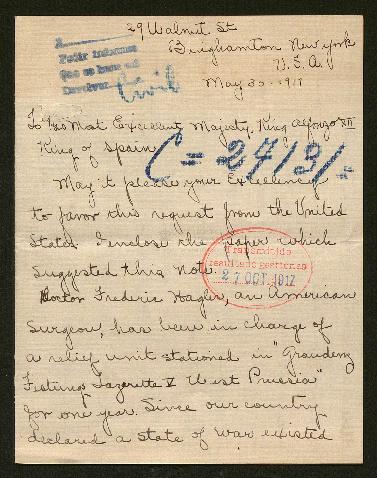 29 Walnut St
Binghamton New York
U.S.A.
May 30 - 1917
Pedir informes
que se haga and
Devolver
Civil
To His Most Excellent Majesty, King Alfonzo XIII
King of Spain
C = 2413/-
May it please your Excellency
to favor this request from the United
States. I enclose the paper which
suggested this note.
Transmitido
resultado gestiones
27 OCT. 1917
Doctor Frederic Hagler, an American
Surgeon, has been in charge of
a relief unit stationed in "Graudenz
Festung Lazarette V West Prussia"
for one year. Since our country
declared a state of war existed